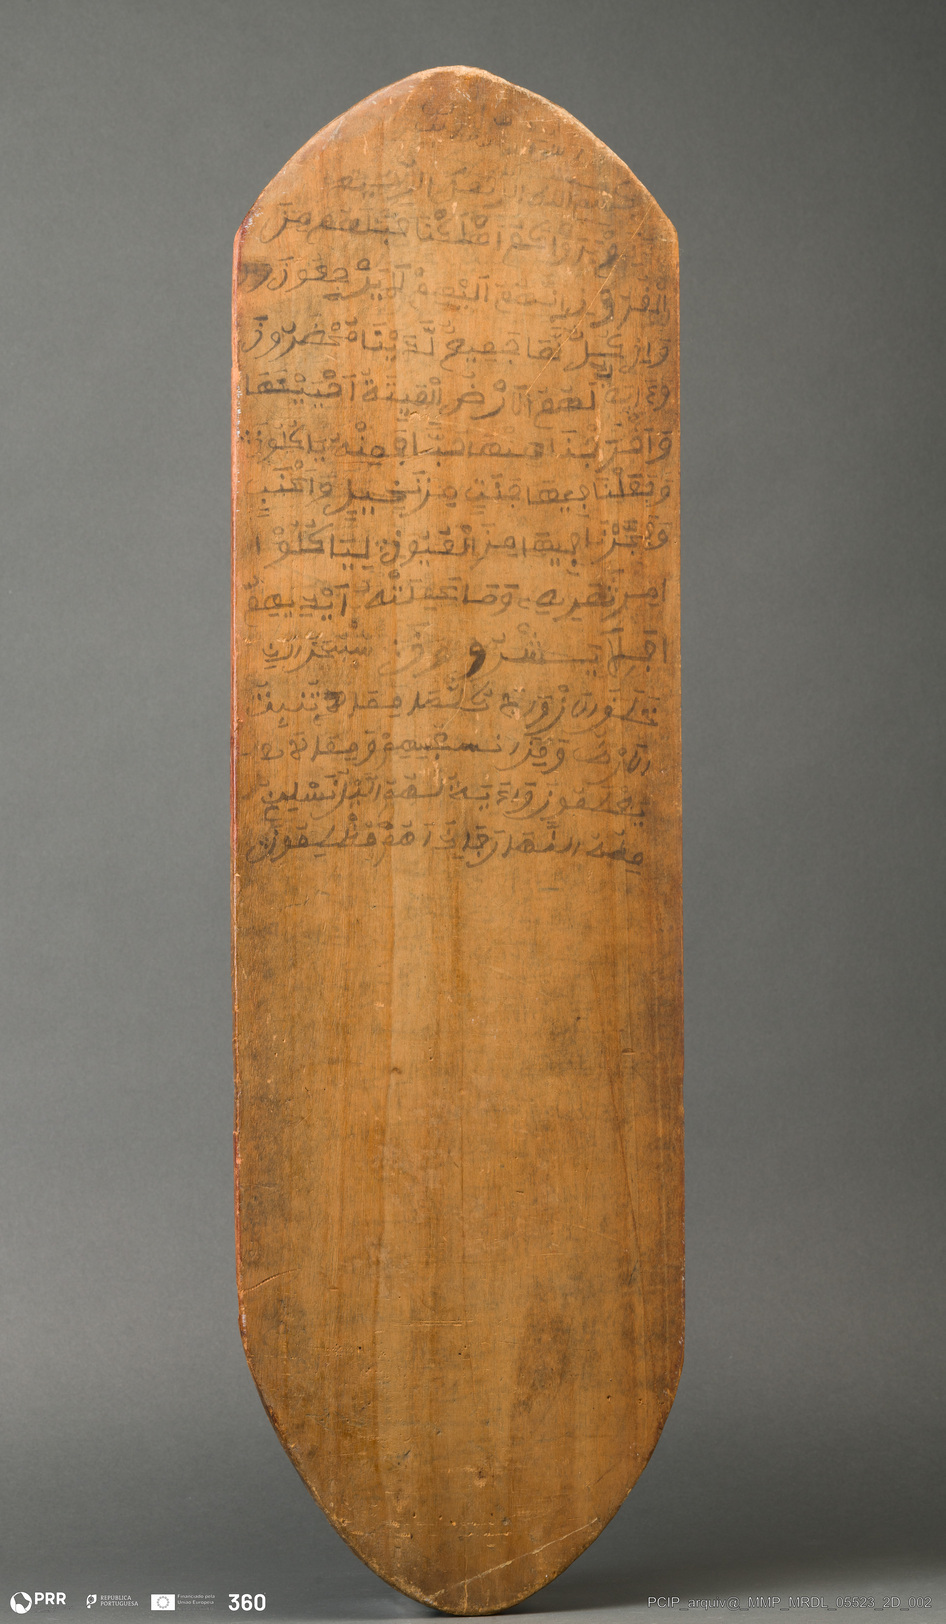 بسم الله الرحمن الرحيم
يروا كم اهلكنا قبلهم من
القرون انهم اليهم لا يرجعون
وان كل لما جميع لدينا محضرون
وءاية لهم الارض الميتة احيينها
واخرجنا منها حبا فمنه ياكلون
وجعلنا فيها جنت من نخيل واعنب
وفجرنا فيها من العيون لياكلوا
من ثمره وما عملته ايديهم
افلا يشكرون سبحن الذي
خلق الازوج كلها مما تنبت
الارض ومن انفسهم ومما لا
يعلمون وءاية لهم اليل نسلخ
منه النهار فاذا هم مظلمون
PRR
REPÚBLICA PORTUGUESA
Financiado pela União Europeia
360
PCIP_arquiv@_MMP_MRDL_05523_2D_002